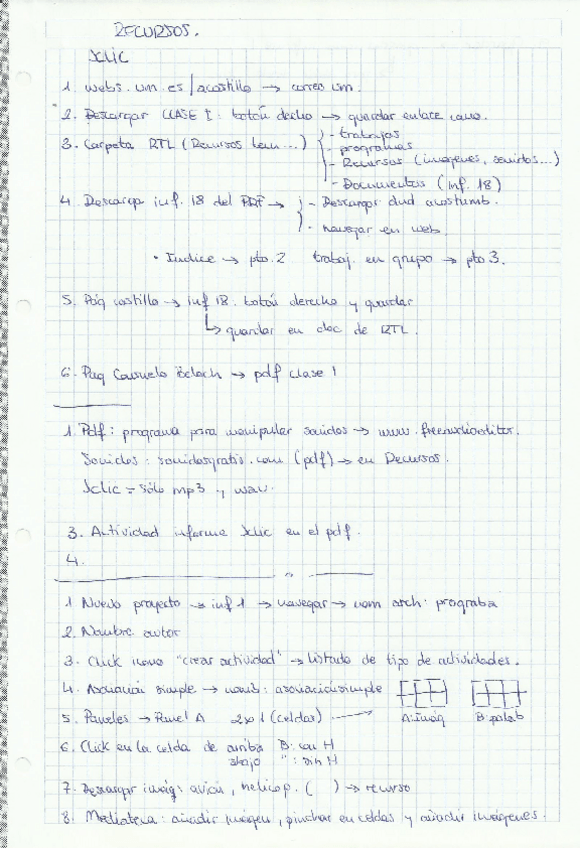 RECURSOS.
JCLIC
1. webs. um. es / acostillo → correo um.
2. Descargar CLASE I: botón decho → guardar enlace como.
3. Carpeta RTL (Recursos tem...) - trabajos
- programas
- Recursos (imágenes, sonidos...)
- Documentos (inf. 18)
4. Descarga inf. 18 del PDF → - Descargar acostumb.
- navegar en web.
• Indice → pto. 2 trabaj. en grupo → pto 3.
5. Pág costillo → inf 18. botón derecho y guardar
↳ guardar en doc de RTL.
6. Pag Consuelo Belloch → pdf clase 1
1. Pdf: programa para manipular sonidos → www. freeaudioeditor.
Sonidos: sonidosgratis.com (pdf) → en Recursos.
Jclic = sólo mp3 y wav.
3. Actividad informe Jclic en el pdf.
4.
1 Nuevo proyecto → inf 1 → navegar → nom arch: prograba
2. Nombre autor
3. Click icono "crear actividad" → listado de tipo de actividades.
4. Asociación simple → nomb: asociaciónsimple
5. Paneles → Panel A 2x1 (celdas) → A: Imág B: palab
6. Click en la celda de arriba B: con H
abajo " : sin H
7. Descargar imág: avión, helicop. ( ) → recurso
8. Mediateca: añadir imágen, pinchar en celdas y añadir imágenes.